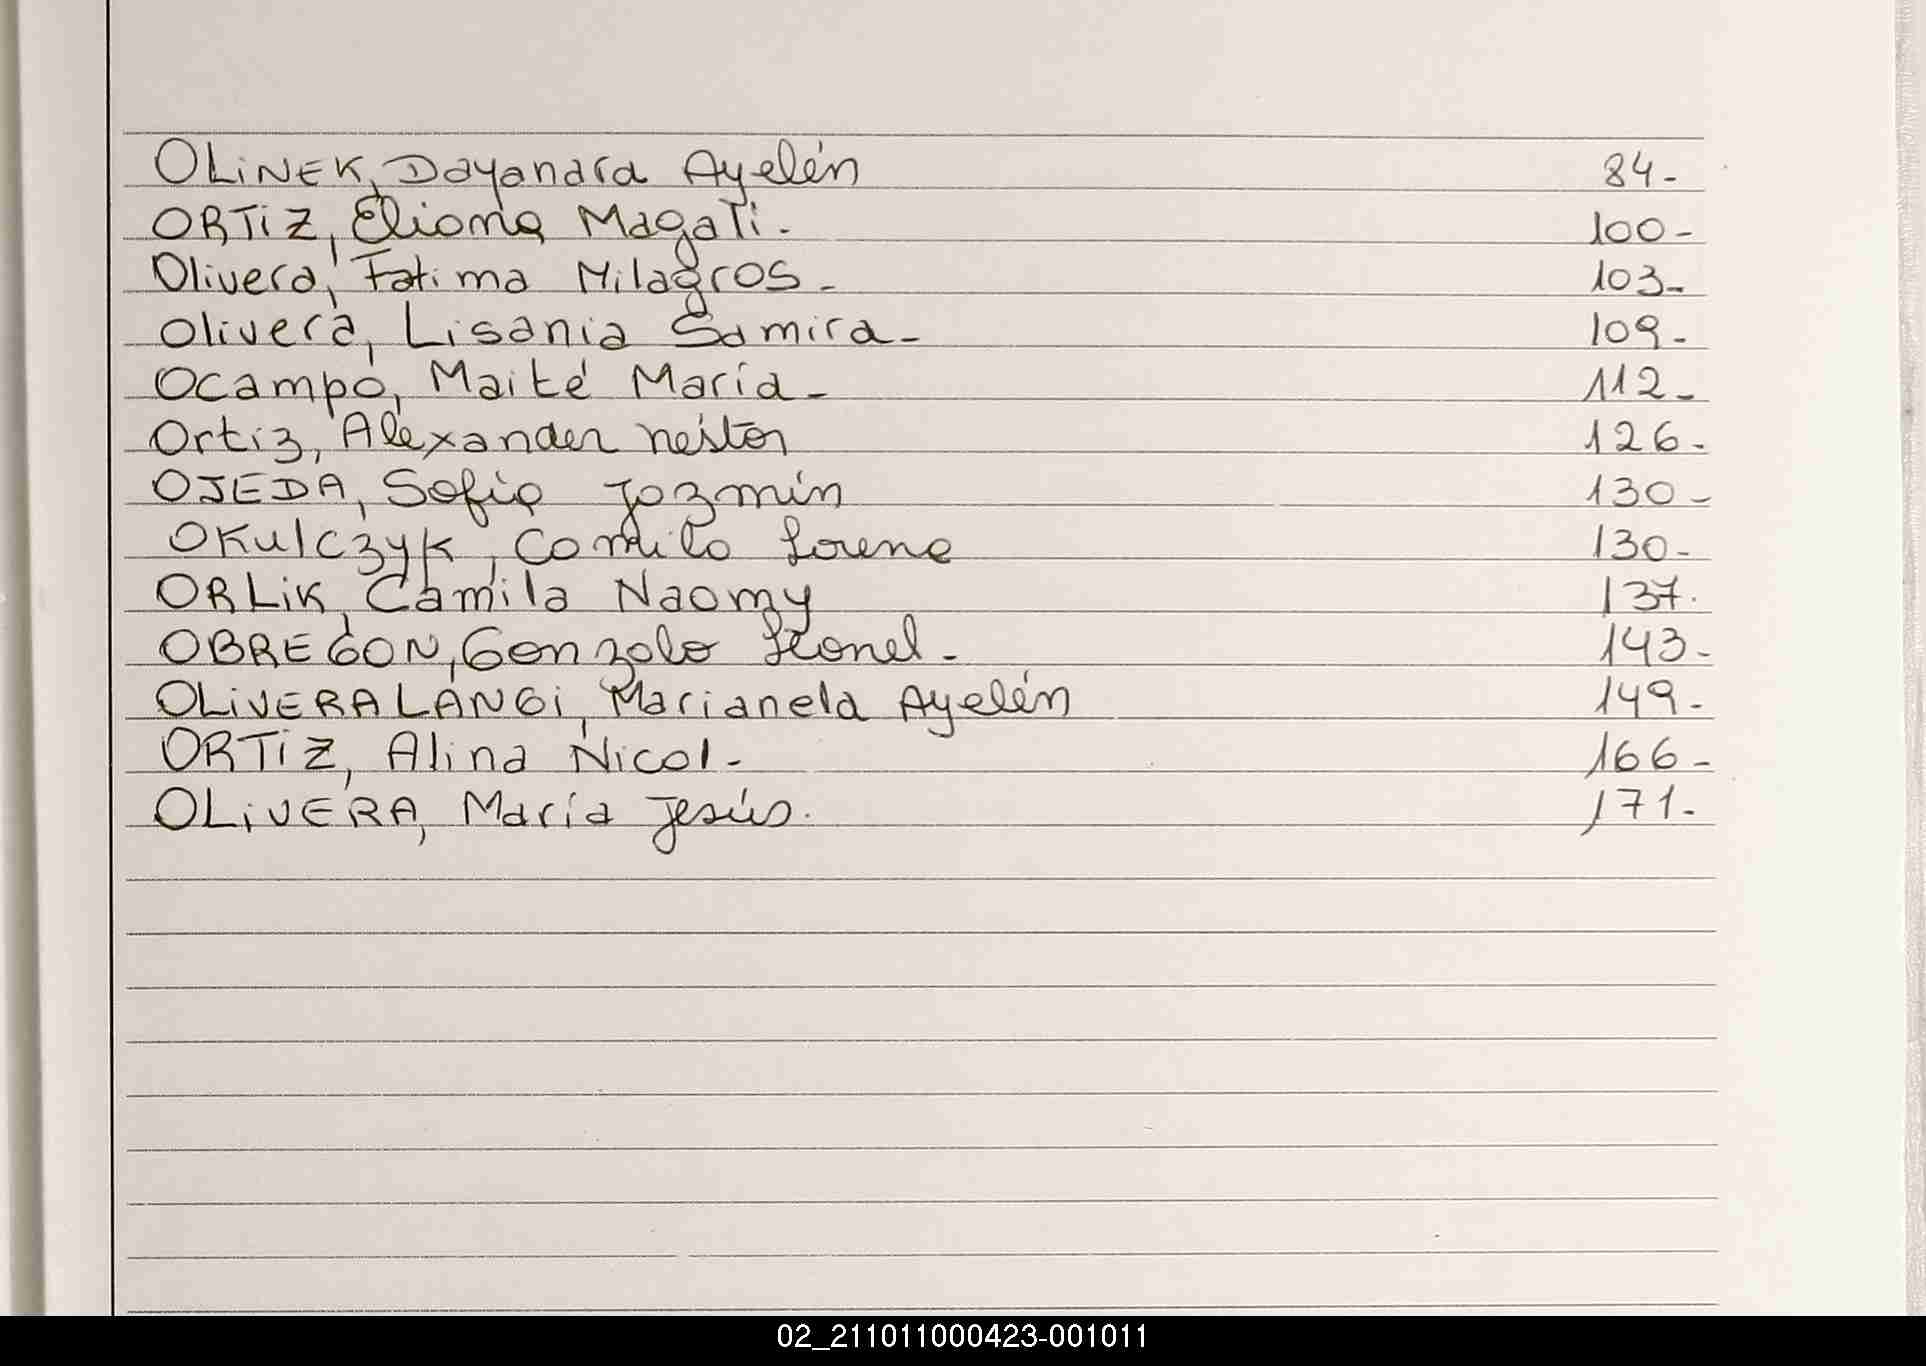 OLINEK, Dayanara Ayelén 84-
ORTIZ, Eliana Magali. 100-
Olivera, Fatima Milagros- 103-
Olivera, Lisania Samira- 109-
Ocampo, Maité María- 112-
Ortiz, Alexander nestor 126-
OJEDA, Sofia Jazmín 130-
OKulczyk, Camila Lorena 130-
ORLIK, Camila Naomy 137.
OBREGON, Gonzalo Leonel- 143-
OLIVERA LANGI, Marianela Ayelén 149-
ORTIZ, Alina Nicol- 166-
OLIVERA, María Jesús. 171-
02_211011000423-001011